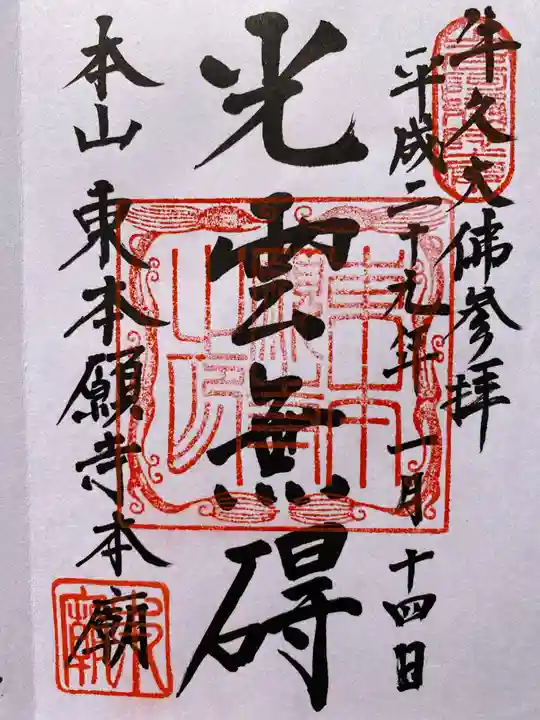 牛久大佛参拝
平成二十九年一月十四日
光雲無碍
本山 東本願寺本廟